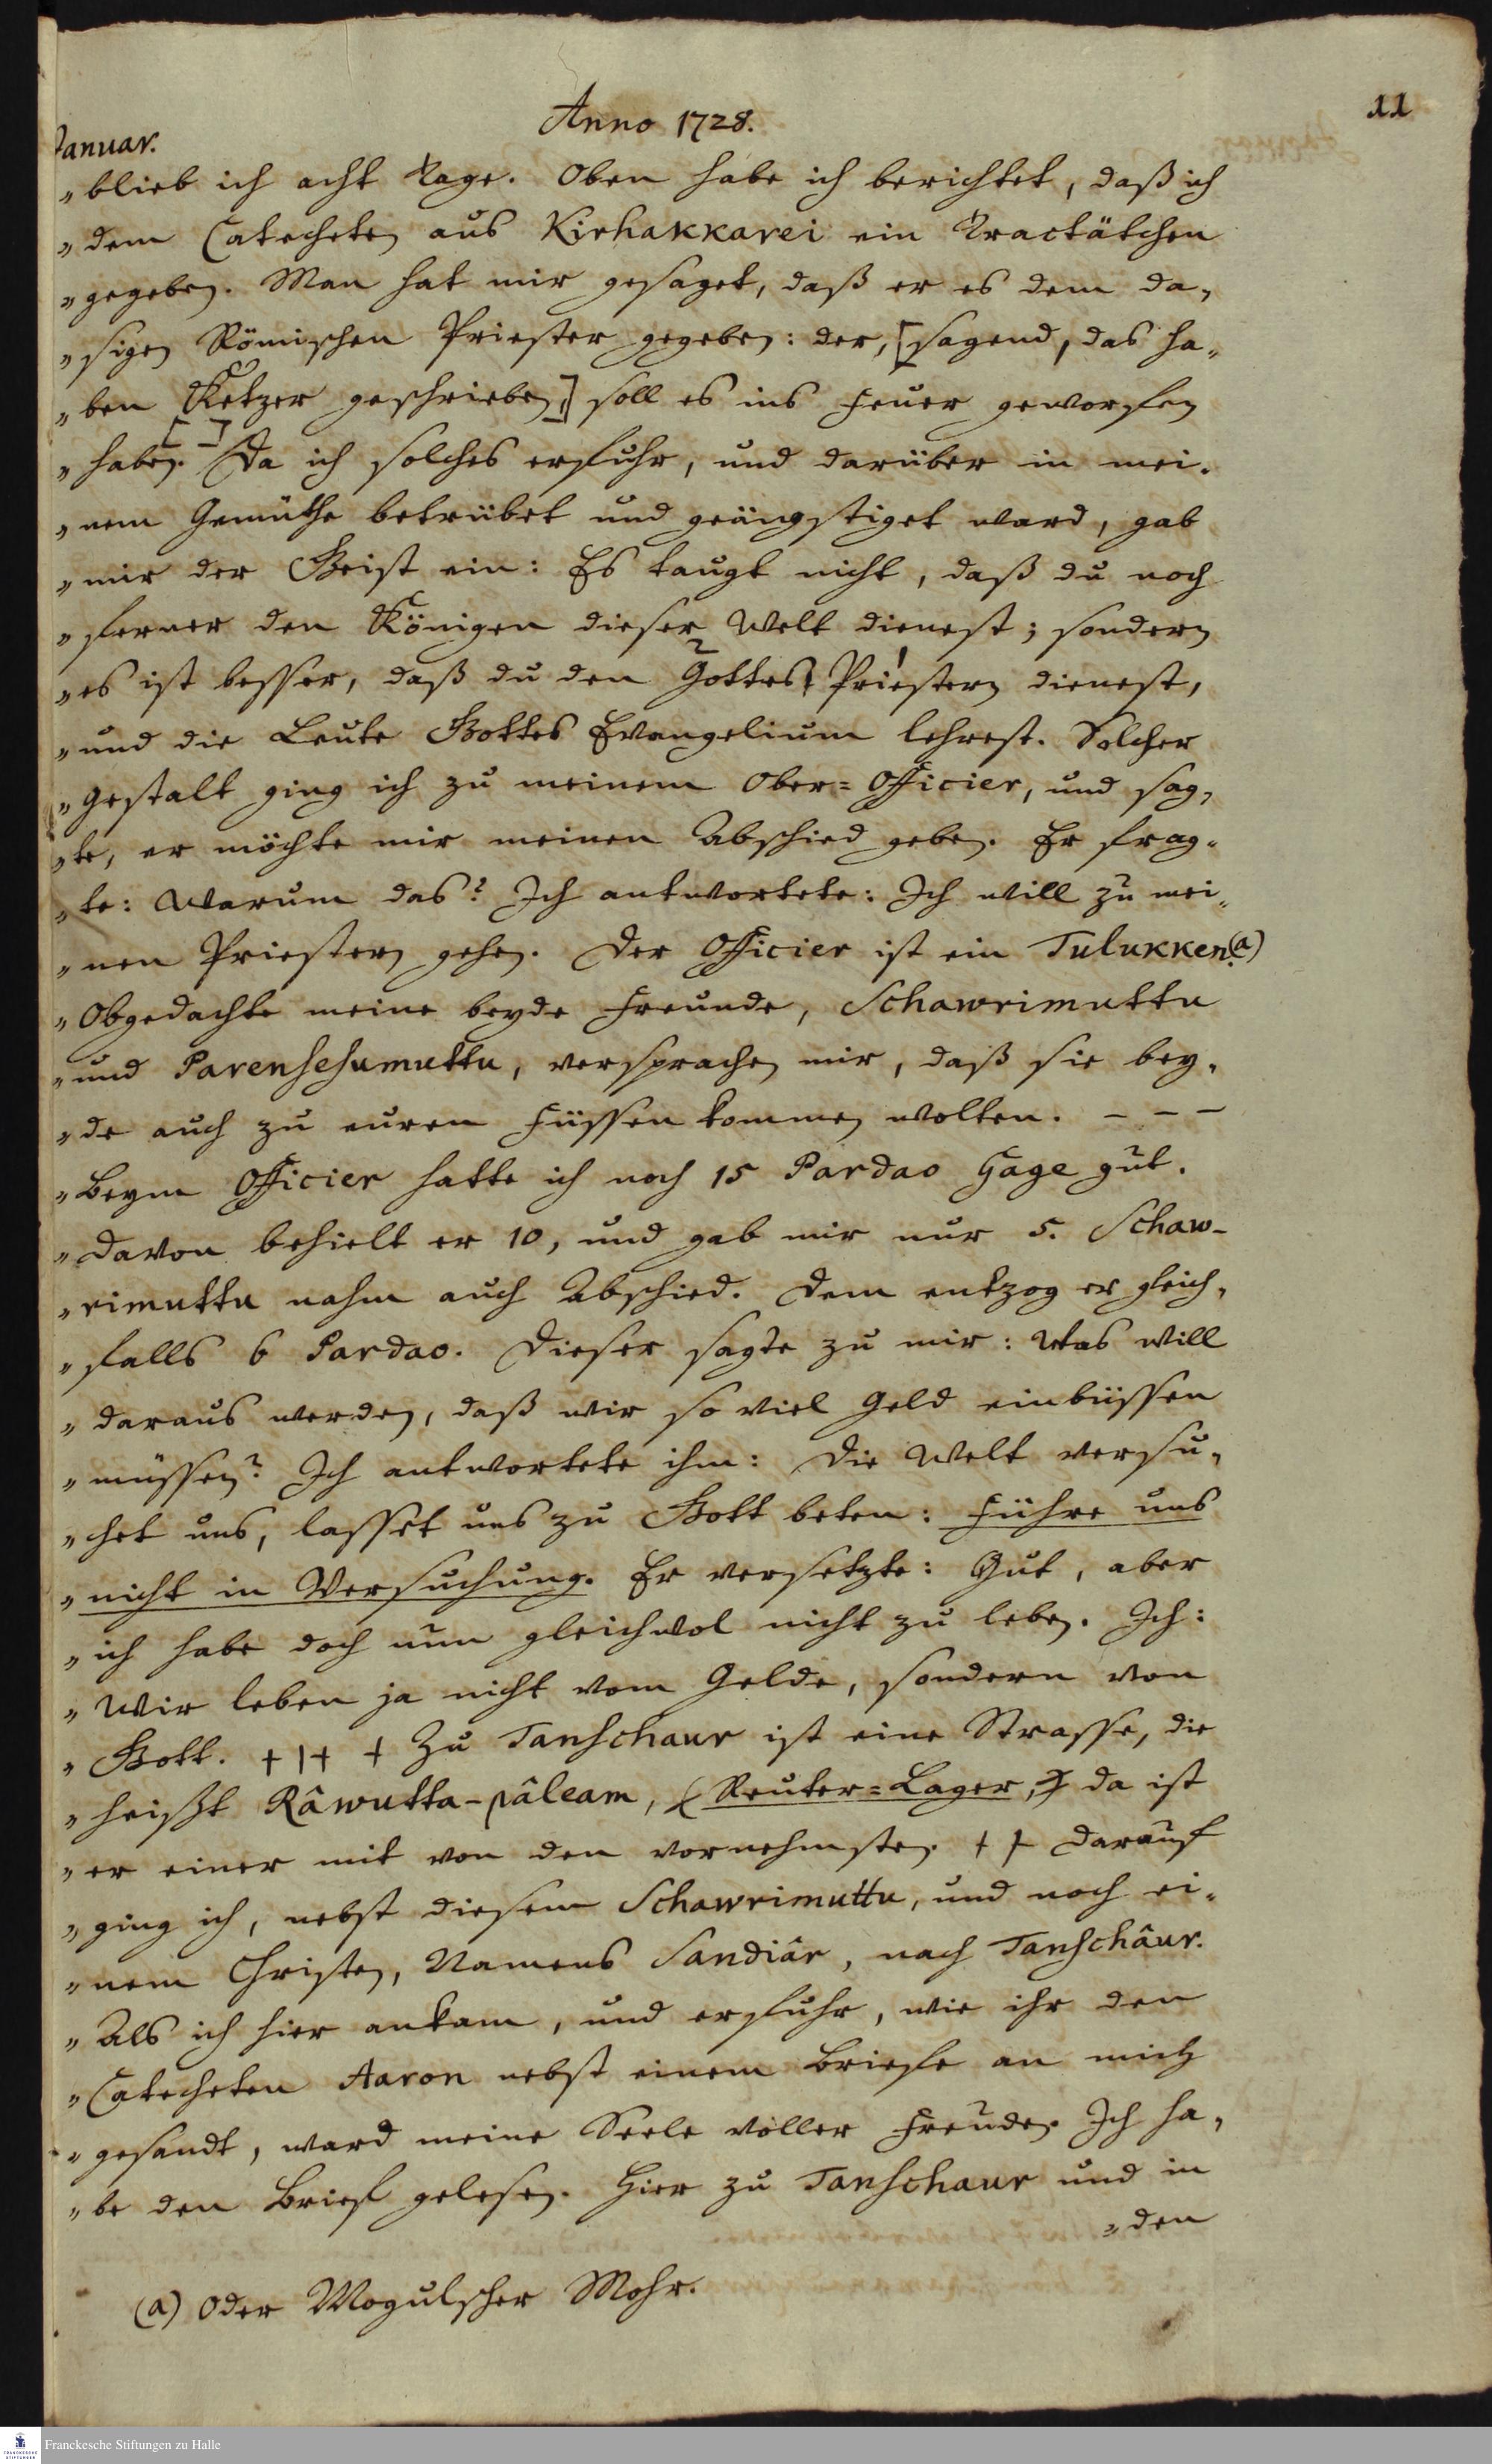 11
Anno 1728.
Januar.
„blieb ich acht Tage. Oben habe ich berichtet, daß ich
„dem Catecheten aus Kirhakkarei ein Tractätchen
„gegeben. Man hat mir gesaget, daß er es dem da„
„sigen Römischen Priester gegeben: der, [sagend, das ha„
„ben Ketzer geschrieben,] soll es ins Feuer geworfen
„haben. [ ] Da ich solches erfuhr, und darüber in mei„
„nem Gemüthe betrübet und geängstiget ward, gab
„mir der Geist ein: Es taugt nicht, daß du noch
„ferner den Königen dieser Welt dienest; sondern
„es ist besser, daß du den Gottes Priestern dienest,
„und die Leute Gottes Evangelium lehrest. Solcher
„Gestalt ging ich zu meinem Ober=Officier, und sag„
„te, er möchte mir meinen Abschied geben. Er frag„
„te: Warum das? Ich antwortete: Ich will zu mei„
„nen Priestern gehen. Der Officier ist ein Tulukken.(a)
„Obgedachte meine beyde Freunde, Schawrimuttu
„und Parenschesumuttu, versprachen mir, daß sie bey„
„de auch zu euren Füssen kommen wolten. – – –
„Beym Officier hatte ich noch 15 Pardao Gage gut.
„Davon behielt er 10, und gab mir nur 5. Schaw-
„rimuttu nahm auch Abschied. Dem entzog er gleich„
„falls 6 Pardao. Dieser sagte zu mir: Was will
„daraus werden, daß wir so viel Geld einbüssen
„müssen? Ich antwortete ihm: Die Welt versu„
„chet uns, lasset uns zu Gott beten: Führe uns
„nicht in Versuchung. Er versetzte: Gut, aber
„ich habe doch nun gleichwol nicht zu leben. Ich:
„Wir leben ja nicht vom Gelde, sondern von
„Gott. + | + + Zu Tanschaur ist eine Strasse, die
„heißt Râwutta-pâleam, (Reuter=Lager,) da ist
„er einer mit von den vornehmsten. + + Darauf
„ging ich, nebst diesem Schawrimuttu, und noch ei„
„nem Christen, Namens Sandiâr, nach Tanschâur.
„Als ich hier ankam, und erfuhr, wie ihr den
„Catecheten Aaron nebst einem Briefe an mich
„gesandt, ward meine Seele voller Freuden. Ich ha„
„be den Brief gelesen. Hier zu Tanschaur und in
„den
(a) Oder Mogulscher Mohr.
Franckesche Stiftungen zu Halle